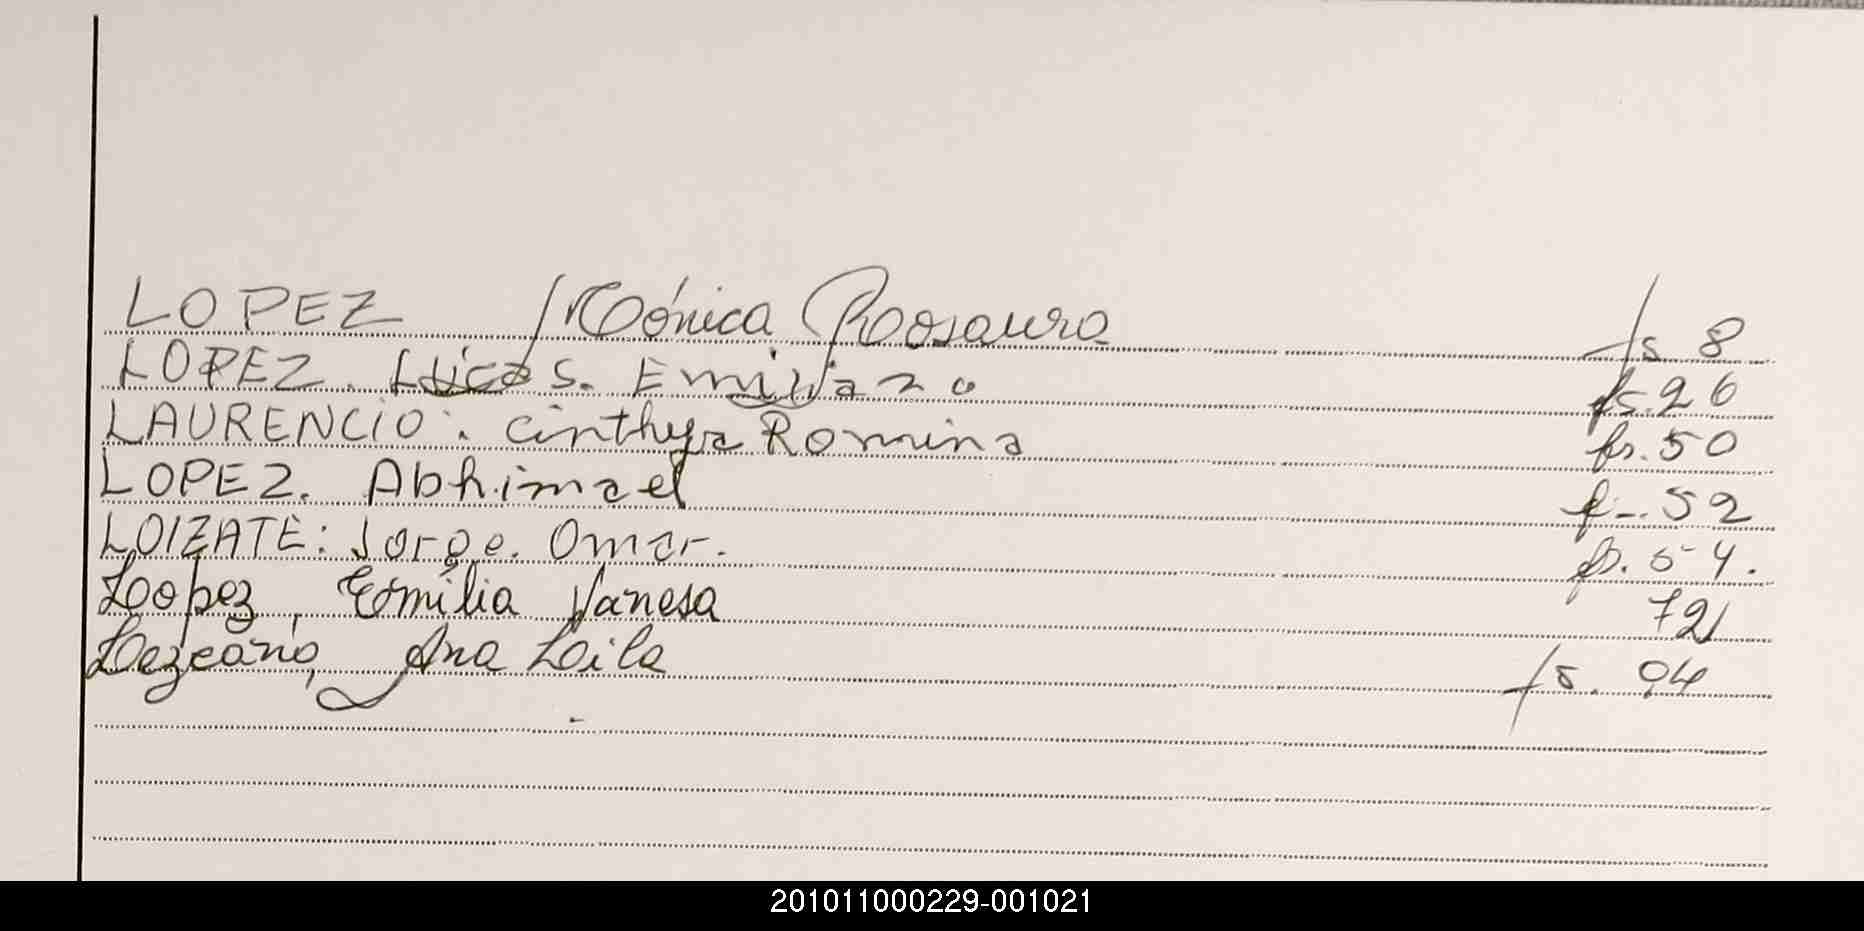 LOPEZ Mónica Rosaura fs 8
LOPEZ. Lucas. Emiliano fs. 26
LAURENCIO: Cinthya Romina fs. 50
LOPEZ. Abhimael f_. 52
LOIZATE: Jorge. Omar. fs. 54.
Lopez, Emilia Vanesa 72
Lezcano, Ana Leila fs. 94
201011000229-001021